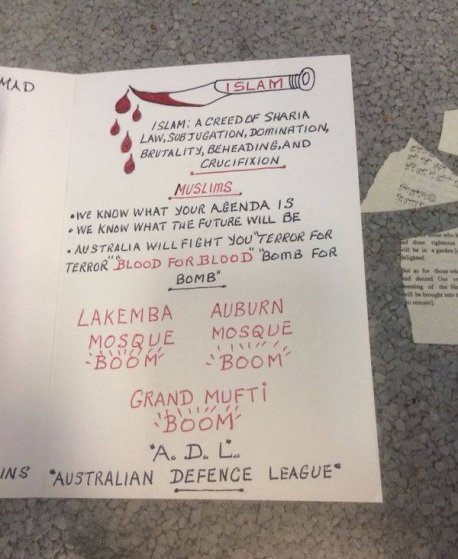 MAD
ISLAM
ISLAM: A CREED OF SHARIA
LAW, SUBJUGATION, DOMINATION,
BRUTALITY, BEHEADING, AND
CRUCIFIXION
MUSLIMS
• WE KNOW WHAT YOUR AGENDA IS
• WE KNOW WHAT THE FUTURE WILL BE
• AUSTRALIA WILL FIGHT YOU "TERROR FOR
TERROR" "BLOOD FOR BLOOD" "BOMB FOR
BOMB"
LAKEMBA
MOSQUE
BOOM
AUBURN
MOSQUE
BOOM
GRAND MUFTI
BOOM
"A. D. L."
INS
"AUSTRALIAN DEFENCE LEAGUE"
righteous
will be in a garden
delighted.
But as for those
and denied Our
meeting of the
will be brought into